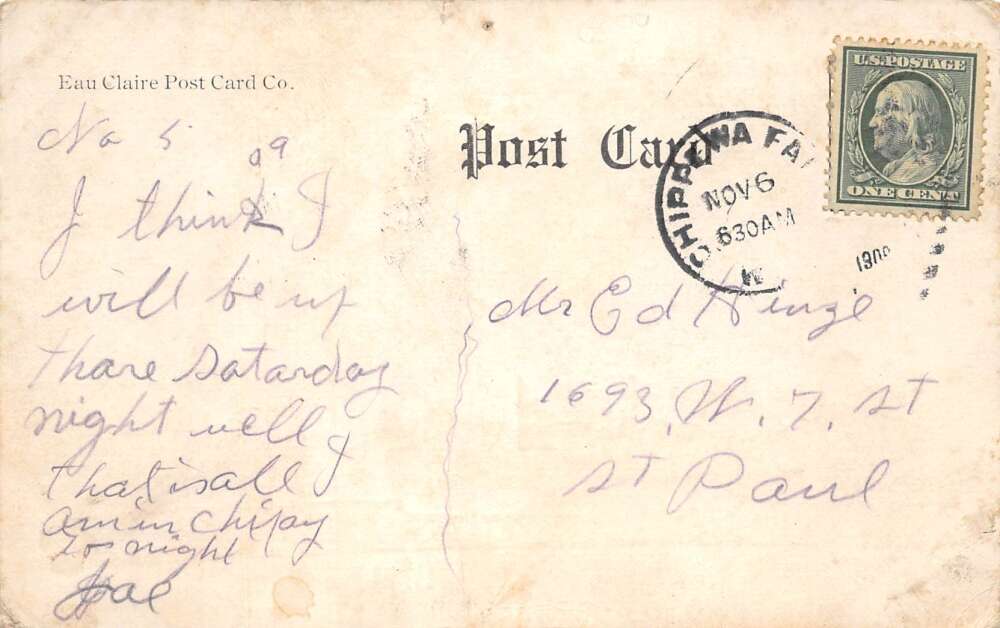 Eau Claire Post Card Co.
Post Card
U.S. POSTAGE
ONE CENT
CHIPPEWA FA
NOV 6
630 AM
W
1909
No 5 09
I think I
will be up
thare Satarday
night well
that is all I
am in Chipay
to night
Mr Ed Hinze
1693, W. 7. St
St Paul